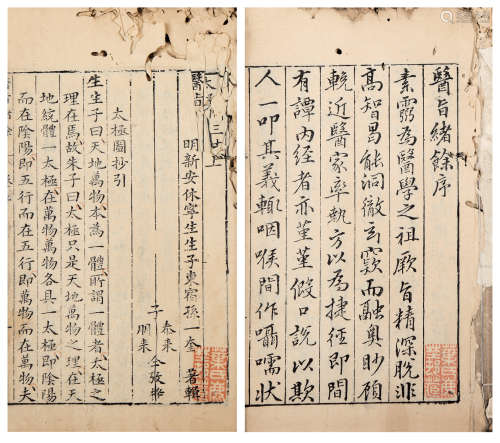 醫旨緒餘序
素靈為醫學之祖厥旨精深脫非
高智曷能洞徹玄竅而融奧妙顧
輓近醫家率執方以為捷徑即間
有譚內經者亦堇堇假口說以欺
人一叩其義輒咽喉間作囁嚅狀
醫旨 上
明新安休寧生生子東宿孫一奎 著輯
子 泰來
朋來 仝
太極圖抄引
生生子曰天地萬物本為一體所謂一體者太極之
理在焉故朱子曰太極只是天地萬物之理在天
地統體一太極在萬物萬物各具一太極即陰陽
而在陰陽即五行而在五行即萬物而在萬物夫